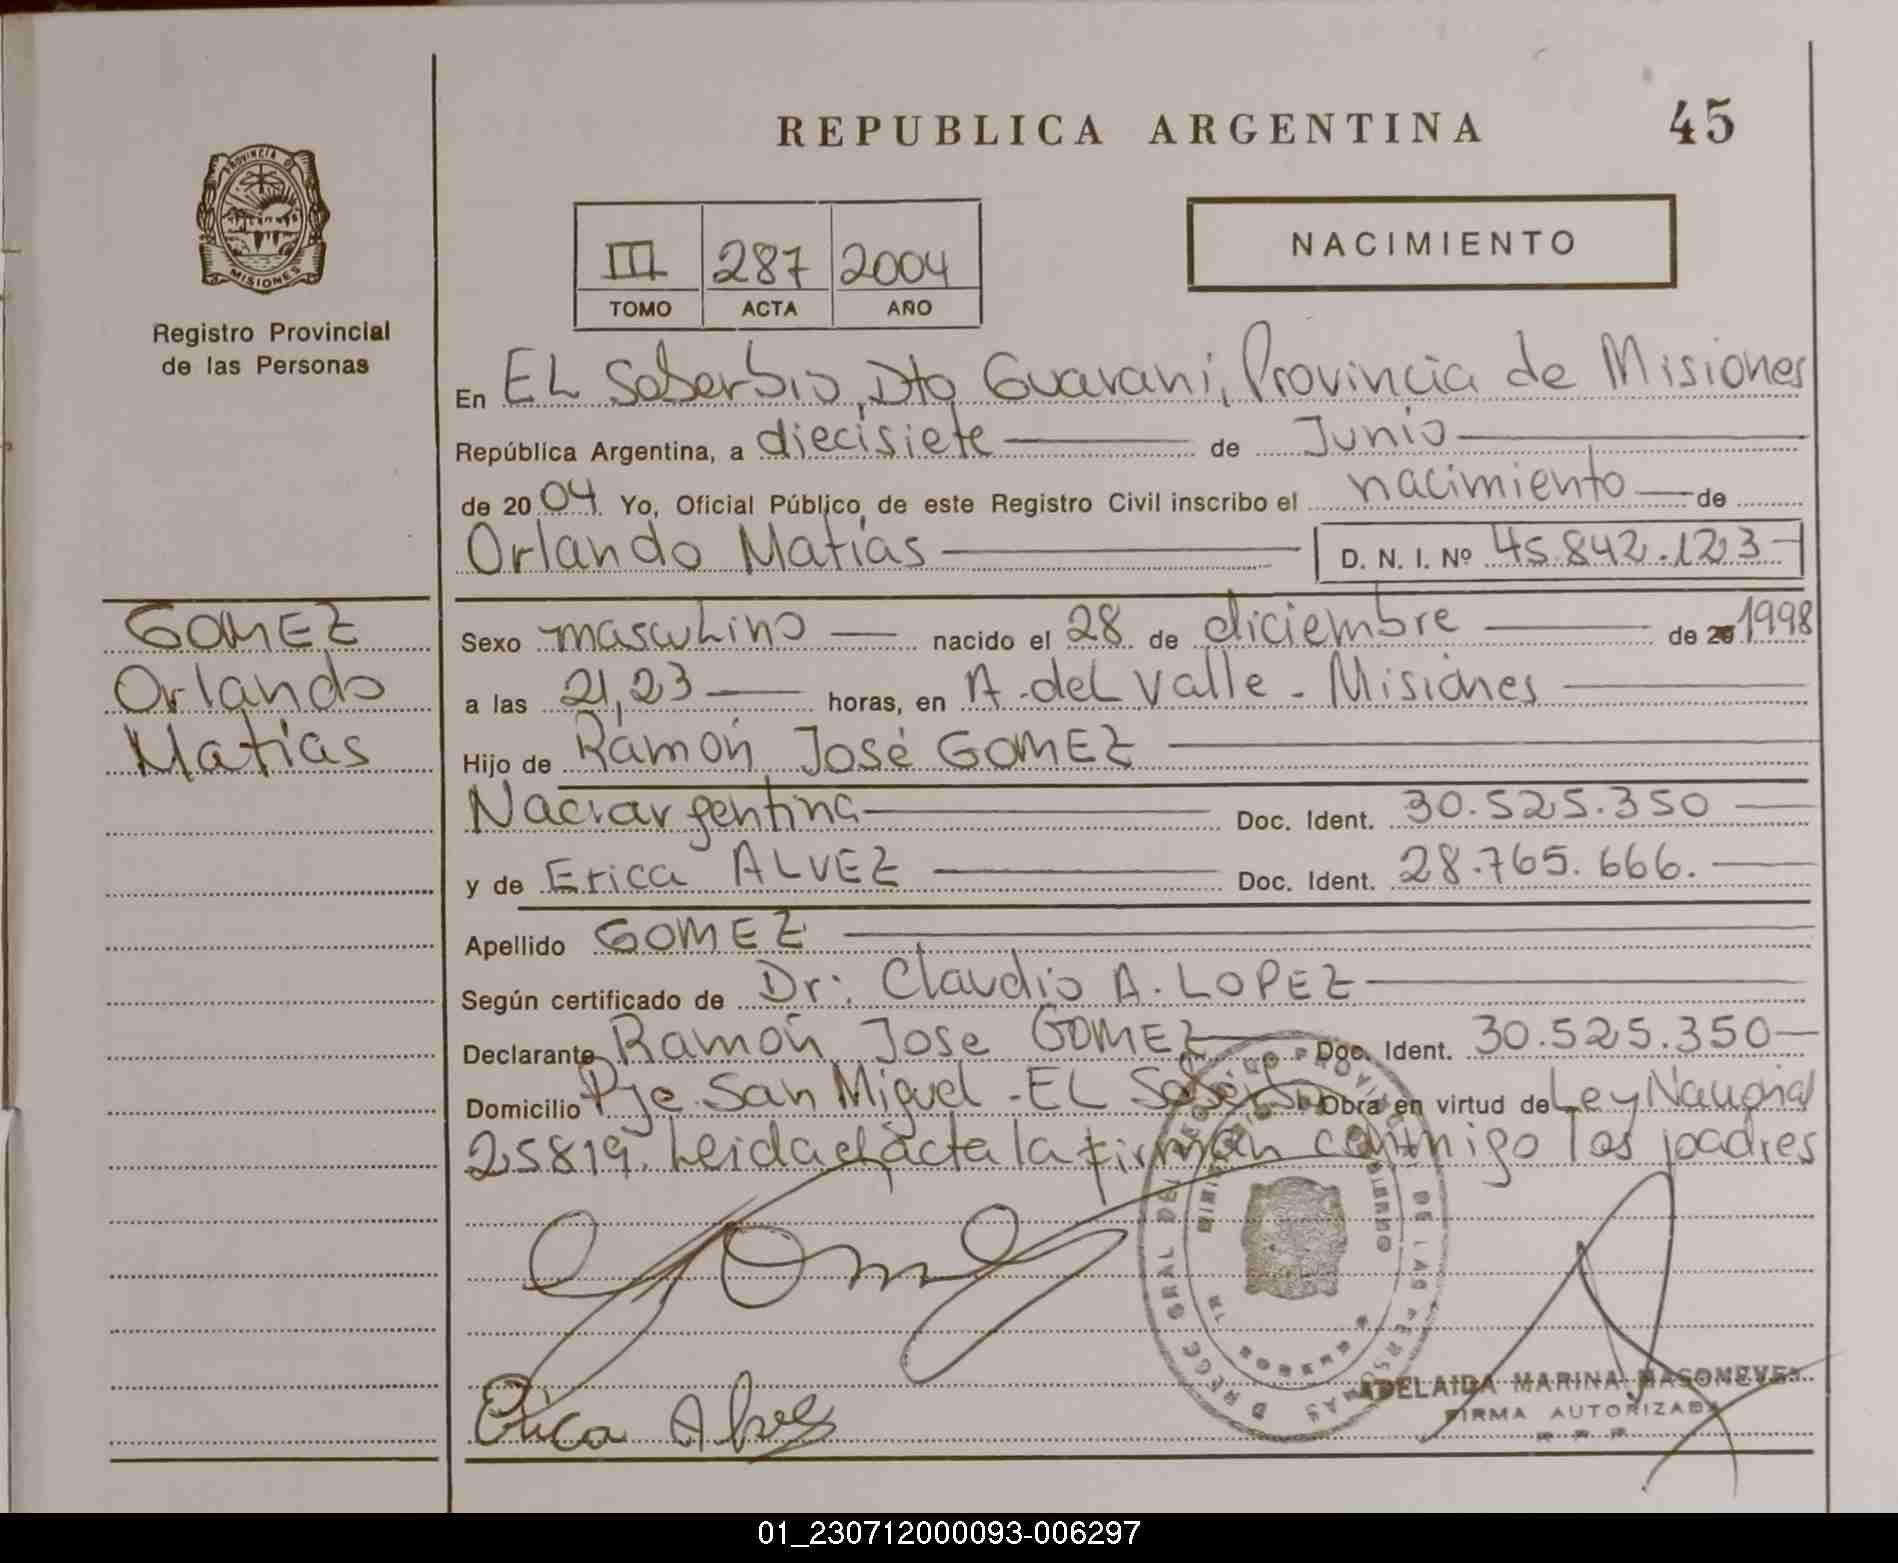 REPUBLICA ARGENTINA
45
PROVINCIA D
MISIONES
Registro Provincial
de las Personas
III 287 2004
TOMO ACTA AÑO
NACIMIENTO
En EL Soberbio, Dto Guarani, Provincia de Misiones
República Argentina, a diecisiete de Junio
de 2004. Yo, Oficial Público de este Registro Civil inscribo el nacimiento de
Orlando Matias D. N. I. Nº 45.842.123
GOMEZ
Orlando
Matías
Sexo masculino nacido el 28 de diciembre de 20 1998
a las 21,23 horas, en A. del Valle - Misiones
Hijo de Ramón José GOMEZ
Nac: argentina Doc. Ident. 30.525.350
y de Erica ALVEZ Doc. Ident. 28.765.666.
Apellido GOMEZ
Según certificado de Dr: Claudio A. LOPEZ
Declarante Ramón Jose GOMEZ Doc. Ident. 30.525.350
Domicilio Pje San Miguel - EL Soberbio Obra en virtud de Ley Nacional
25819. Leida el acta la firman conmigo los padres
Erica Alvez
ADELAIDA MARINA
FIRMA AUTORIZADA
01_230712000093-006297